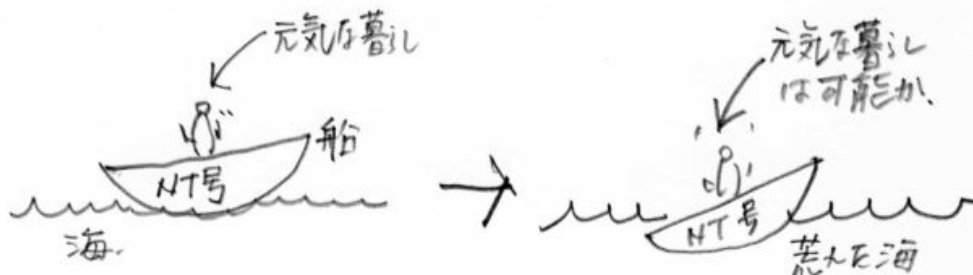 元気な暮らし
船
NT号
海
元気な暮らし
は可能か、
NT号
荒んだ海